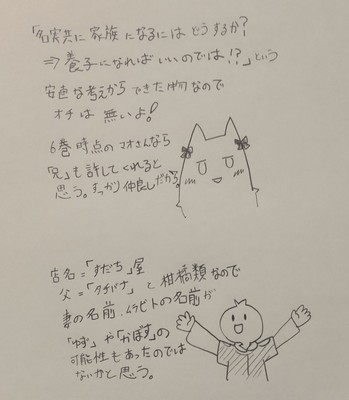 「名実共に家族になるにはどうするか?
⇒養子になればいいのでは!?」という
安直な考えからできた物なので
オチは無いよ!
6巻時点のマオさんなら
「兄」も許してくれると
思う。すっかり仲良しだから。
店名=「すだち」屋
父=「クチバナ」と柑橘類なので
妻の名前、ムラビトの名前が
「ゆず」や「かぼす」の
可能性もあったのでは
ないかと思う。